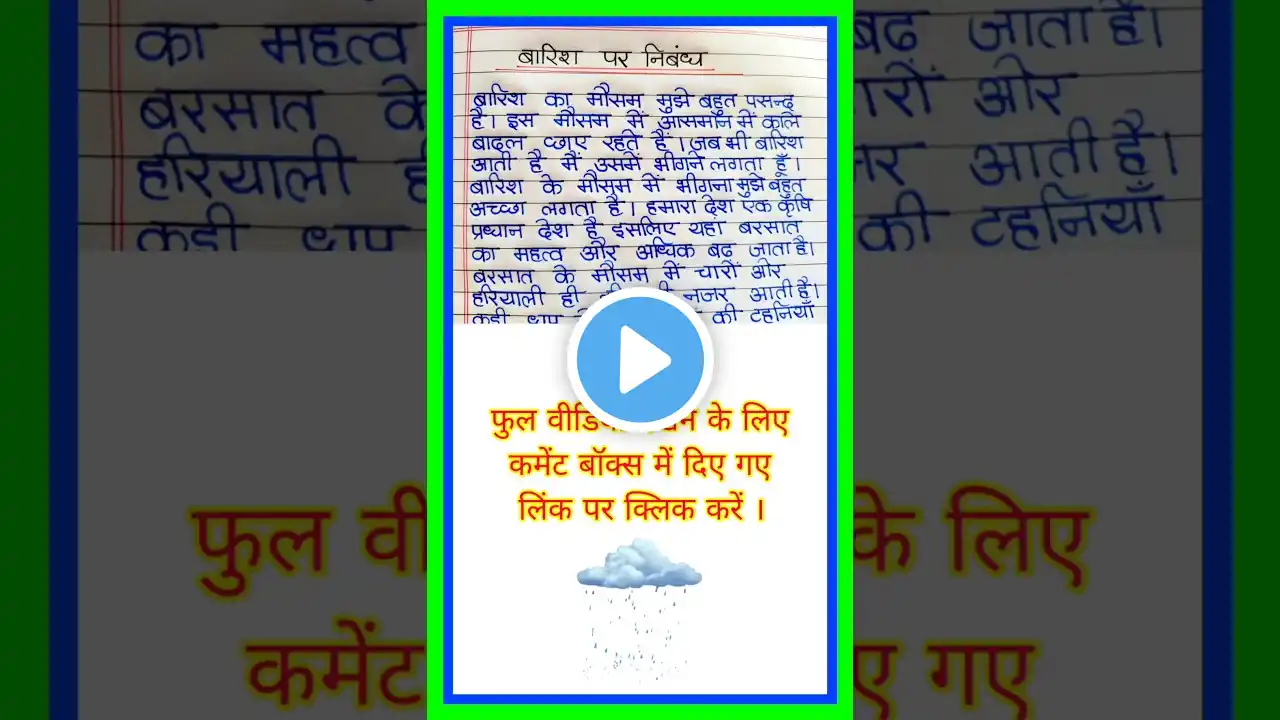 बारिश पर निबंध
बारिश का मौसम मुझे बहुत पसन्द
है। इस मौसम में आसमान में काले
बादल छाए रहते हैं। जब भी बारिश
आती है मैं उसमें भीगने लगता हूँ।
बारिश के मौसम में भीगना मुझे बहुत
अच्छा लगता है। हमारा देश एक कृषि
प्रधान देश है इसलिए यहां बरसात
का महत्व और अधिक बढ़ जाता है।
बरसात के मौसम में चारों ओर
हरियाली ही नजर आती है।
की टहनियाँ
फुल के लिए
कमेंट बॉक्स में दिए गए
लिंक पर क्लिक करें ।